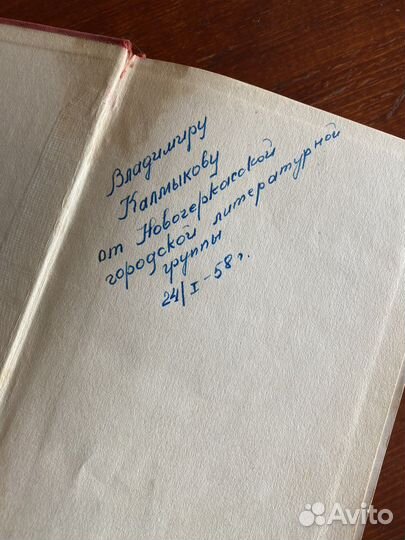 Владимиру
Калмыкову
от Новочеркасской
городской литературной
группы
24/I-58 г.
Avito